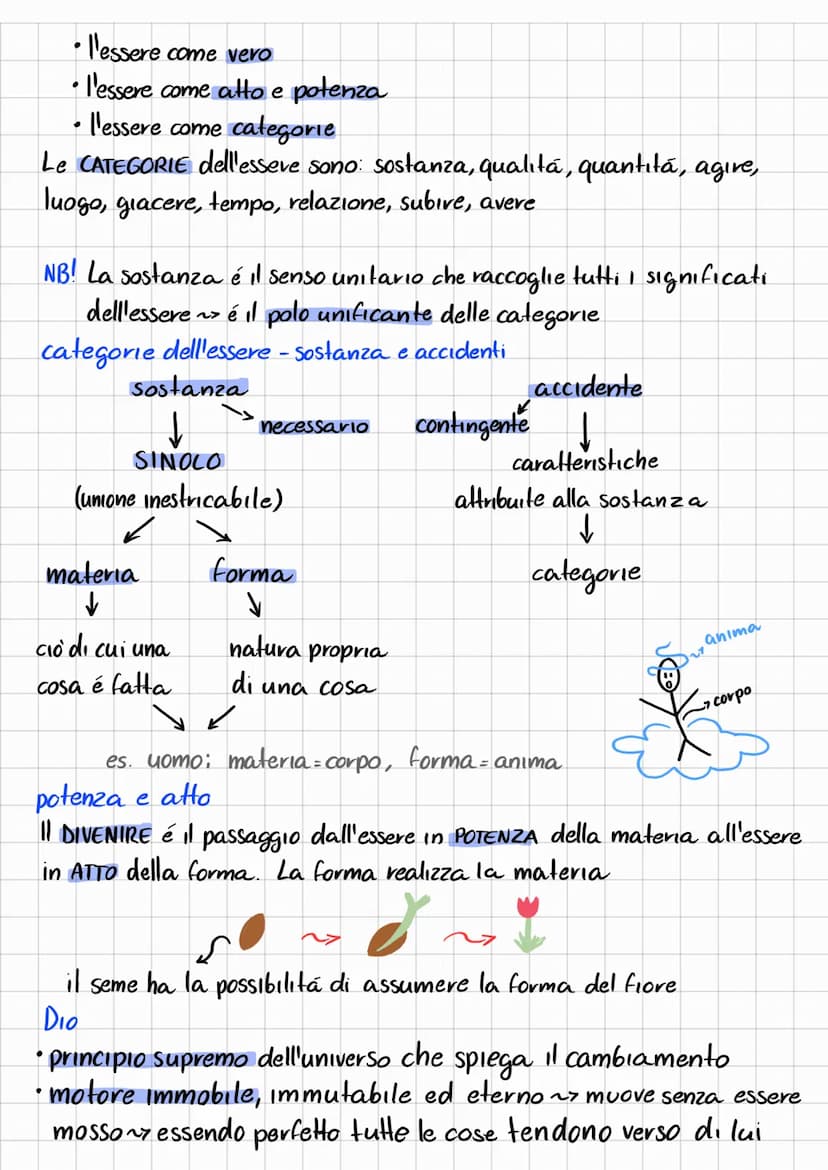 • l'essere come vero
• l'essere come atto e potenza
• l'essere come categorie
Le CATEGORIE dell'essere sono: sostanza, qualitá, quantitá, agire,
luogo, giacere, tempo, relazione, subire, avere
NB! La sostanza é il senso unitario che raccoglie tutti i significati
dell'essere ~> é il polo unificante delle categorie
categorie dell'essere - sostanza e accidenti
sostanza
accidente
necessario
contingente
SINOLO
caratteristiche
(unione inestricabile)
attribuite alla sostanza
materia
forma
categorie
ció di cui una
natura propria
cosa é fatta
di una cosa
anima
corpo
es. uomo: materia = corpo, forma = anima
potenza e atto
Il DIVENIRE é il passaggio dall'essere in POTENZA della materia all'essere
in ATTO della forma. La forma realizza la materia
il seme ha la possibilitá di assumere la forma del fiore
Dio
• principio supremo dell'universo che spiega il cambiamento
• motore immobile, immutabile ed eterno ~> muove senza essere
mosso ~> essendo perfetto tutte le cose tendono verso di lui